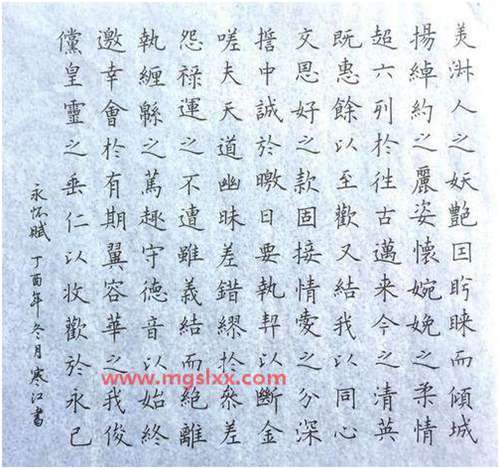 美淋人之妖艷囙眄睞而傾城
揚綽約之麗姿懷婉娩之柔情
超六列於徃古邁來今之清英
既惠餘以至歡又結我以同心
文恩好之款固接情愛之分深
中誠於曒日要執契以斷金
嗟夫天道幽昧差錯繆扵叅差
怨祿運之不遭雖義結而絕離
執纏緜之篤趣守德音以始終
邀幸會於有期翼容華之我俊
儻皇靈之垂仁以收歡於永已
永怀賦 丁酉年冬月寒江書
www.mgslxx.com